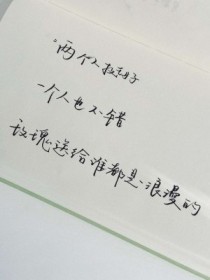 两个人挺好
一个人也不错
玫瑰送给谁都是浪漫的